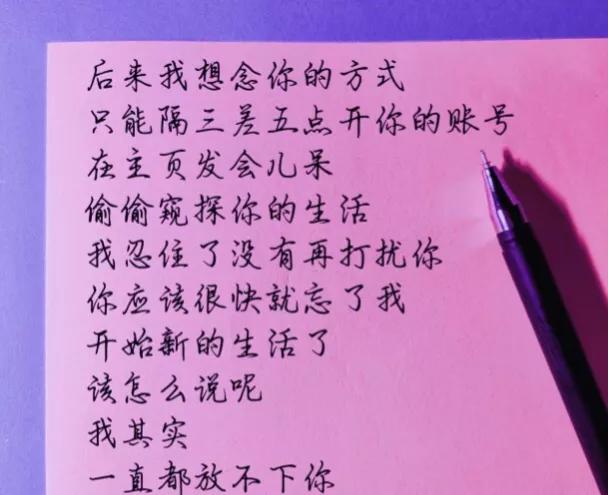 后来我想念你的方式
只能隔三差五点开你的账号
在主页发会儿呆
偷偷窥探你的生活
我忍住了没有再打扰你
你应该很快就忘了我
开始新的生活了
该怎么说呢
我其实
一直都放不下你